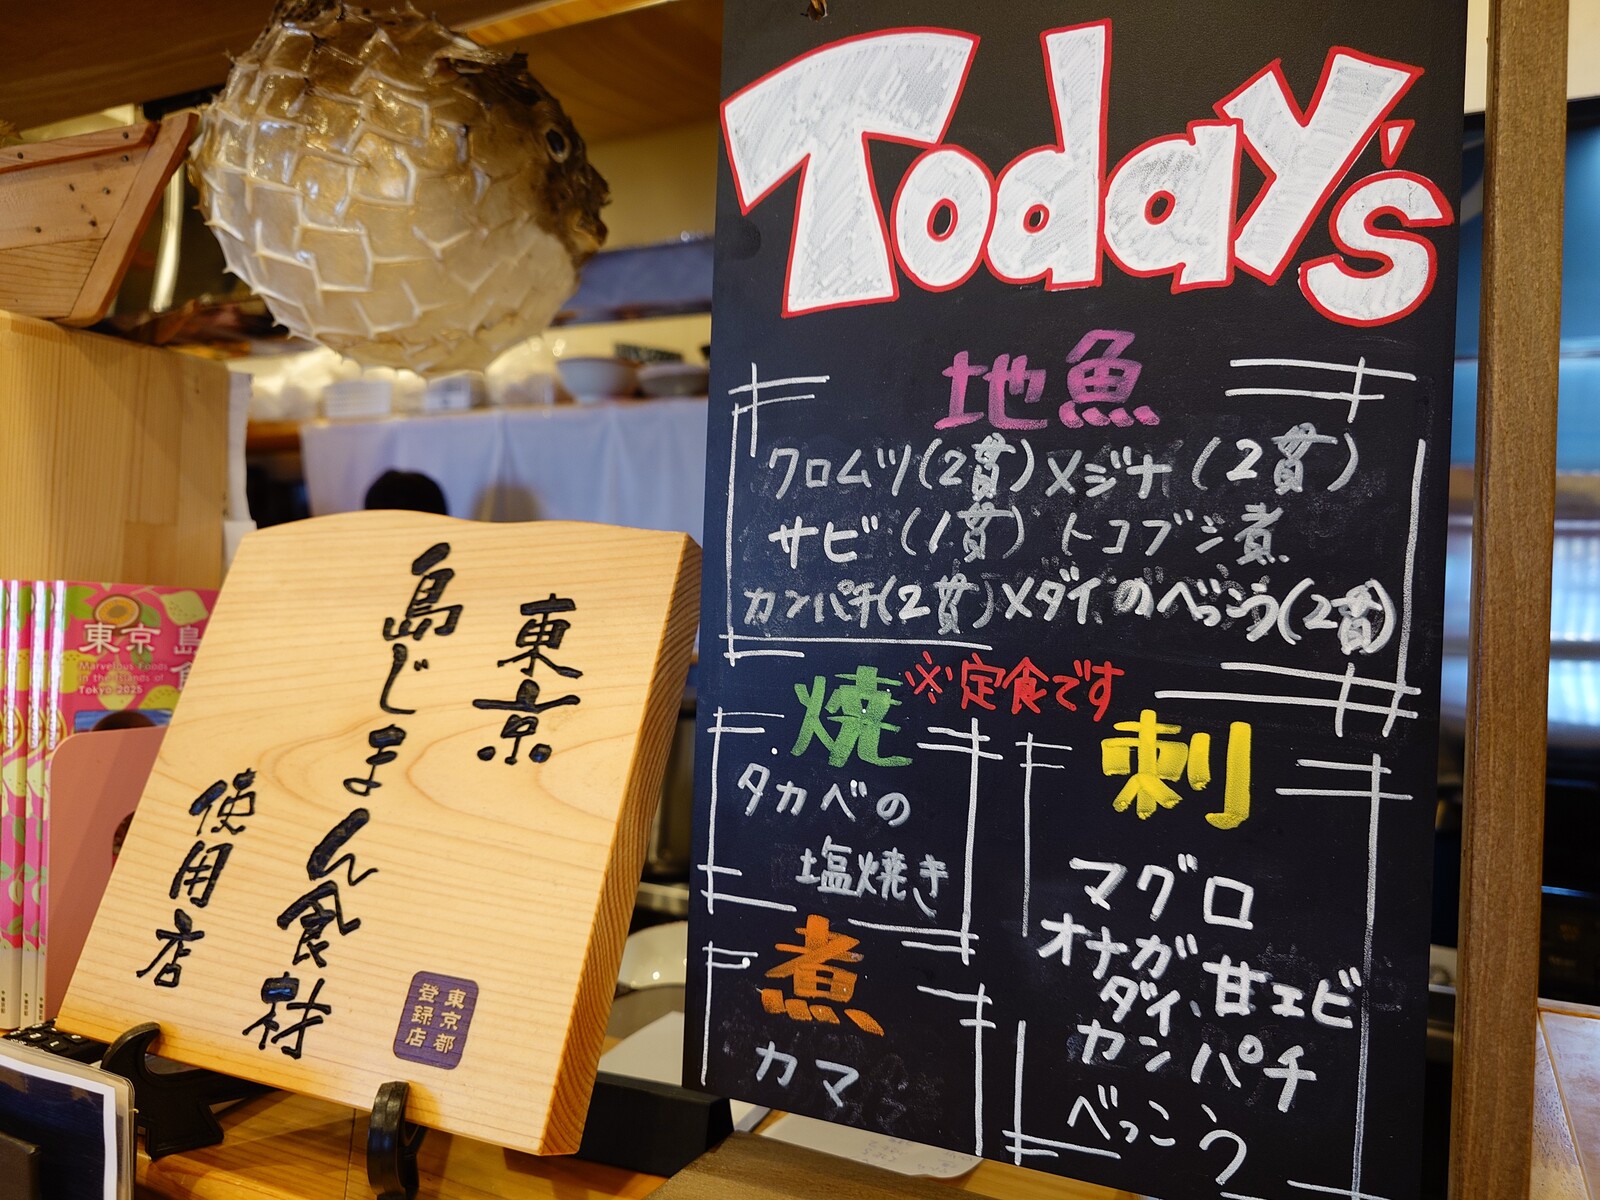 Today's
地魚
クロムツ(2貫) メジナ(2貫)
サビ(1貫) トコブシ煮
カンパチ(2貫) メダイのべっこう(2貫)
※定食です
焼
タカベの
塩焼き
煮
カマ
刺
マグロ
オナガ
ダイ、甘エビ
カンパチ
べっこう
東京
島じまん食材
使用店
東京都
登録店
東京島
Marvelous Foods
in the Islands of
Tokyo 2025